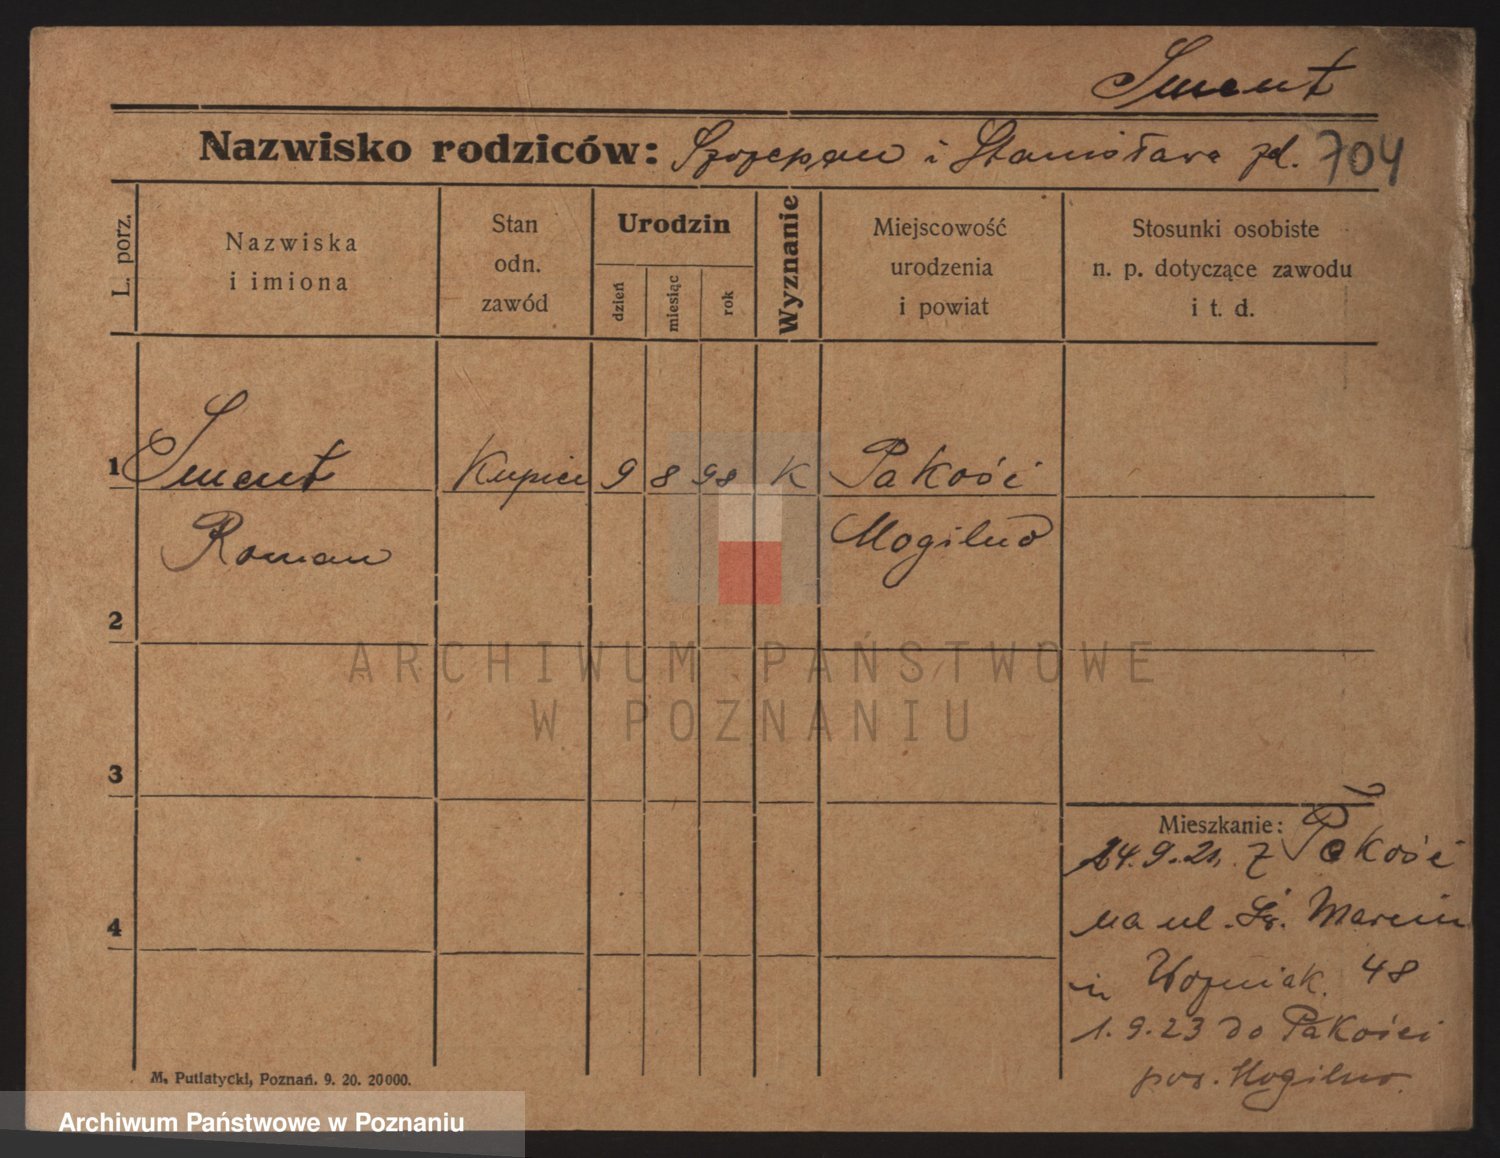 Sment
Nazwisko rodziców: Szczepan i Stanisława zd. 704
L. porz.
Nazwiska
i imiona
Stan
odn.
zawód
Urodzin
dzień
miesiąc
rok
Wyznanie
Miejscowość
urodzenia
i powiat
Stosunki osobiste
n. p. dotyczące zawodu
i t. d.
1 Sment Kupiec 9 8 98 K Pakość
Roman Mogilno
2
3
4
Mieszkanie:
24.9.21. z Pakość
na ul. Św. Marcin
Woźniak. 48
1.9.23 do Pakości
pow. Mogilno.
M. Putiatycki, Poznań. 9. 20. 20000.
ARCHIWUM PAŃSTWOWE
W POZNANIU
Archiwum Państwowe w Poznaniu